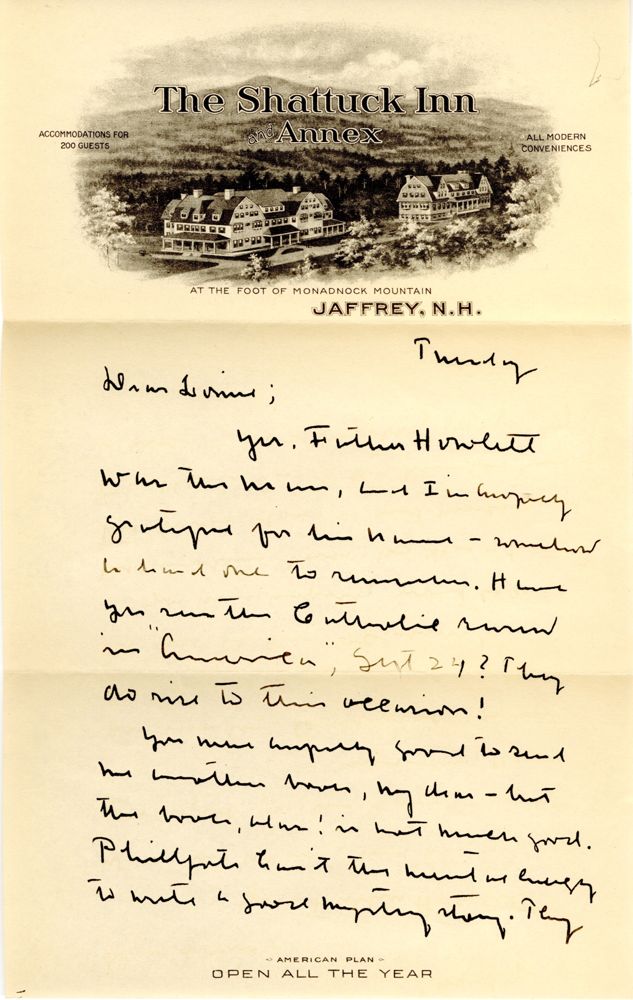 The Shattuck Inn
and Annex
ACCOMMODATIONS FOR
200 GUESTS
ALL MODERN
CONVENIENCES
AT THE FOOT OF MONADNOCK MOUNTAIN
JAFFREY, N.H.
Tuesday
Dear
Yes. Father Howlett
was the name, and I am
grateful for his name – somehow
a hard one to remember. Have
you seen the Catholic
in "America", Sept 24? They
do rise to this occasion!
You were awfully good to send
me another book, my dear – but
the book, alas! is not much good.
Phillpotts hasn't the mental energy
to write a good mystery story. They
AMERICAN PLAN
OPEN ALL THE YEAR